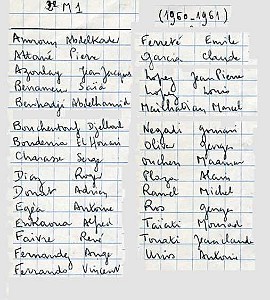 2e M1
Amrouy Abdelkader
Attané Pierre
Azoulay Jean Jacques
Benameur Saïd
Benhadji Abdelhamid
Bouchentouf Djelloul
Boudenna El Houari
Charasse Serge
Diaz Roger
Donat Adrien
Egéa Antoine
Enkaoua Alfred
Faivre René
Fernandez Ange
Ferrando Vincent
(1960-1961)
Ferreté Emile
Garcia Claude
Lopez Jean Pierre
Lopez Louis
Mailhabiau Marcel
Negadi
Oliver George
Ouchen Maamar
Plaza Alain
Ramel Michel
Ros George
Taiati Mourad
Tonati Jean Claude
Urios Antonio